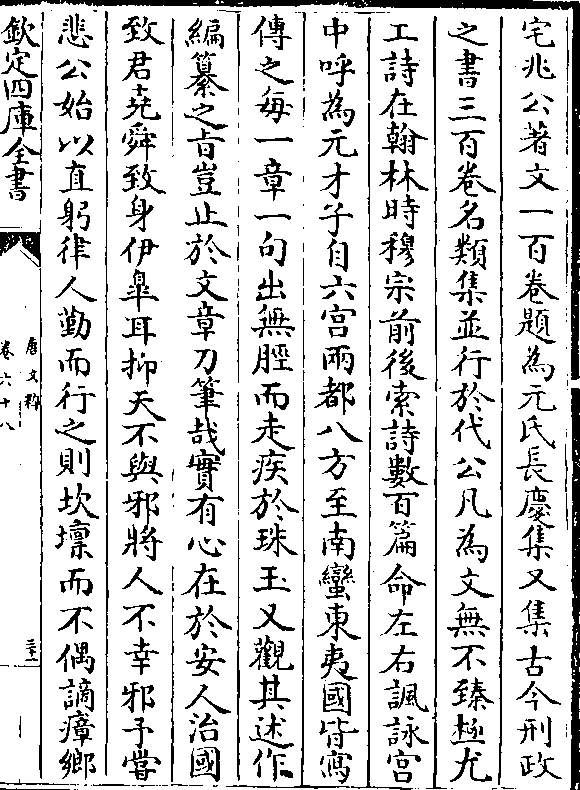 宅兆公著文一百卷題為元氏長慶集又集古今刑政
之書三百卷名類集並行於代公凡為文無不臻極尤
工詩在翰林時穆宗前後索詩數百篇命左右諷詠宫
中呼為元才子自六宫兩都八方至南蠻東夷國皆寫
傳之每一章一句出無脛而走疾於珠玉又觀其述作
編纂之旨豈止於文章刀筆哉實有心在於安人治國
致君堯舜致身伊臯耳抑天不與邪將人不幸邪予嘗
悲公始以直躬律人勤而行之則坎壈而不偶謫瘴鄉
欽定四庫全書
唐文粹
卷六十八